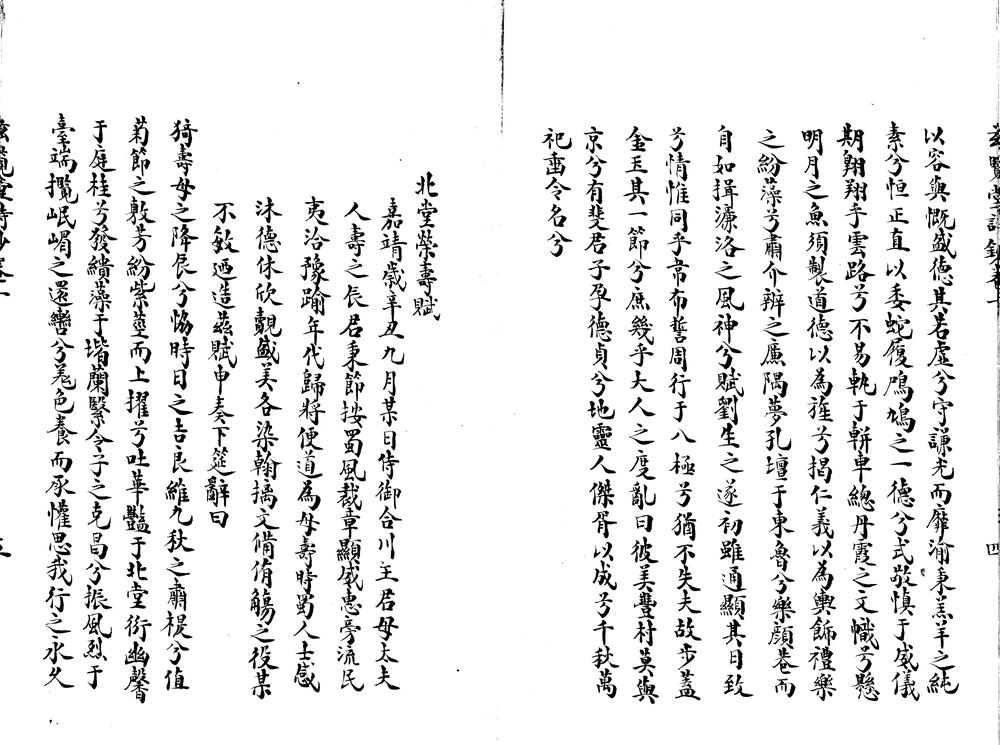 以容與慨盛德其若虛兮守謙光而靡渝秉羔羊之純
素兮恒正直以委蛇履鳲鳩之一德兮式敬慎于威儀
期翱翔乎雲路兮不易軌于軿車總丹霞之文幟兮懸
明月之魚須製道德以為旌兮揭仁義以為輿飾禮樂
之紛藻兮肅介辨之廉隅夢孔壇于東魯兮樂顏巷而
自如揖濂洛之風神兮賦劉生之遂初雖通顯其日致
兮情惟同乎韋布誓周行于八極兮猶不失夫故步蓋
金玉其一節兮庶幾乎大人之度亂曰彼美豐村莫與
京兮有斐君子孕德貞兮地靈人傑胥以成兮千秋萬
祀壐令名兮
北堂榮壽賦
嘉靖歲辛丑九月某日侍御合川王君母太夫
人壽之辰君秉節按蜀風裁章顯威惠旁流民
夷洽豫踰年代歸將便道為母壽時蜀人士感
沐德休欣覩盛美各染翰摛文備侑觴之役某
不敏廼造茲賦申奏下筵辭曰
猗壽母之降辰兮協時日之吉良維九秋之肅椳兮值
菊節之敷芳紛紫莖而上擢兮吐華豔于北堂衍幽馨
于庭桂兮發繢藻于堦蘭繄令子之克昌兮振風烈于
臺端攬岷嵋之還轡兮羗色養而承懽思我行之永久
四
五